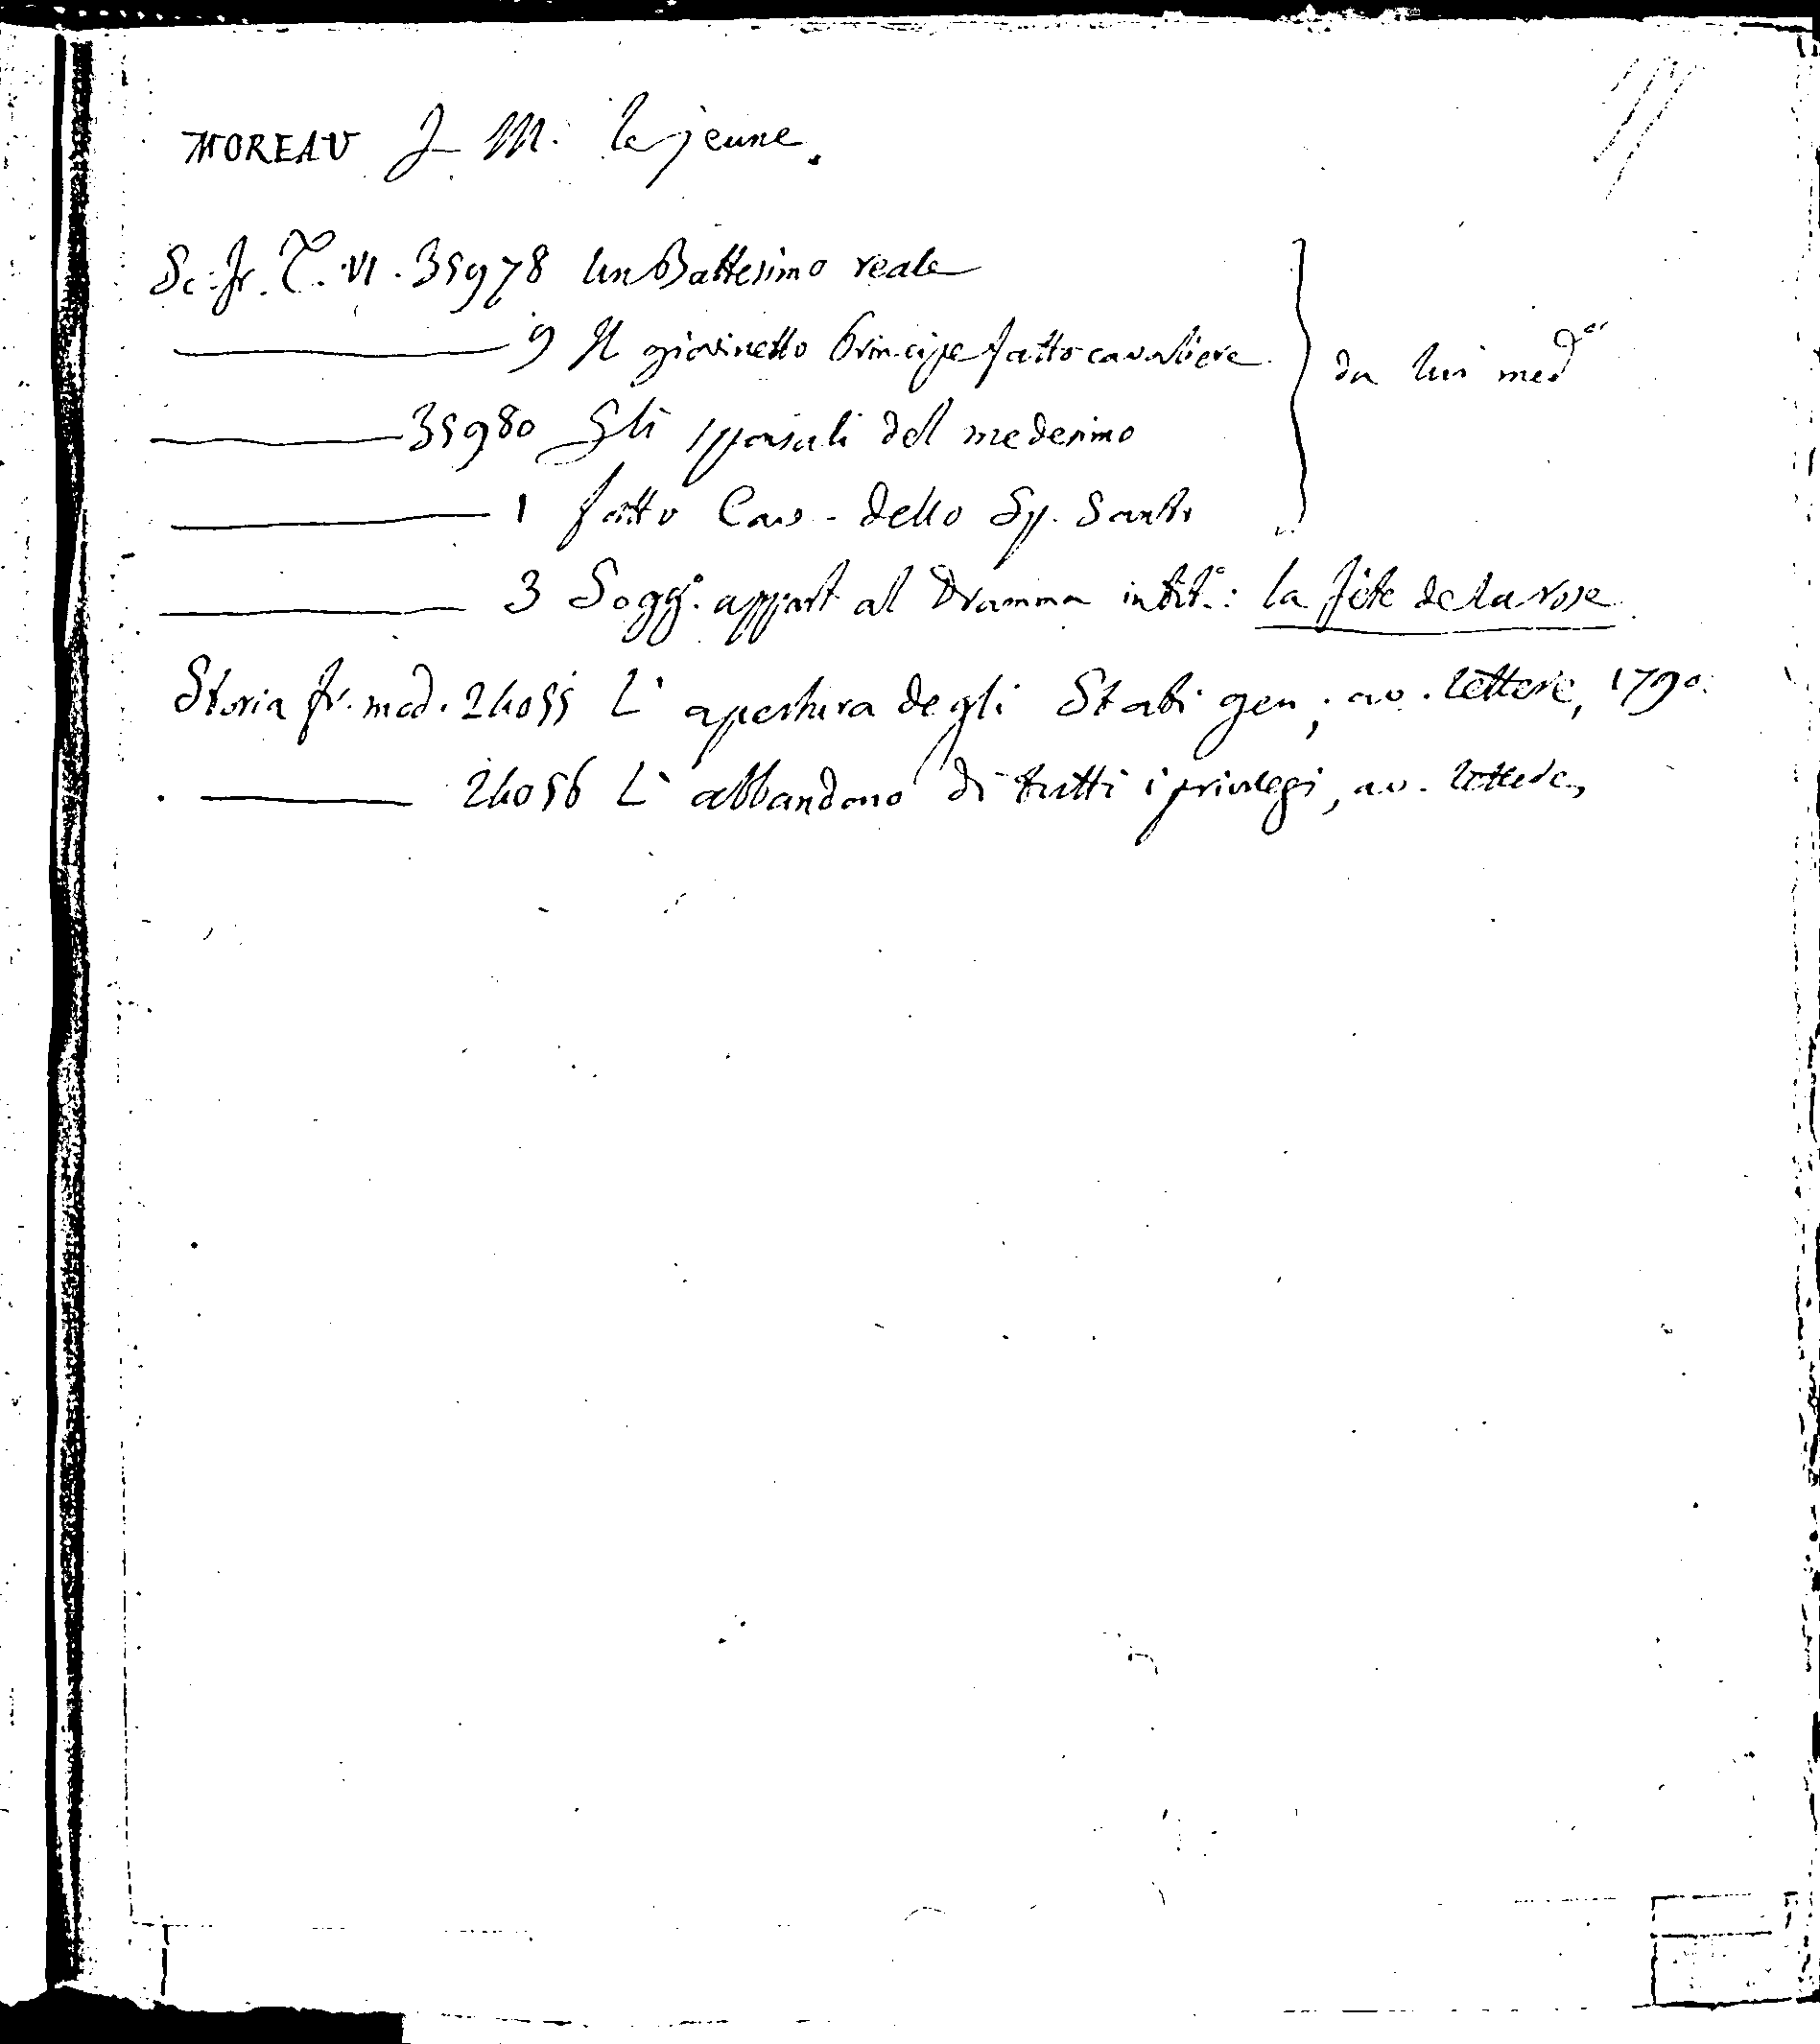 MOREAU J M. le jeune.
Sc. fr. T. VI. 35978 Un Battesimo reale
9 Il giovinetto Principe fatto cavaliere
da lui med
35980 Gli sponsali del medesimo
1 fatto Cav. dello Sp. Santo
3 Sogg. appart al Dramma intit.: la fête de la rose
Storia fr. mod. 24055 L'apertura degli Stati gen; av. lettere, 1790.
24056 L'abbandono di tutti i privilegi, av. lettere